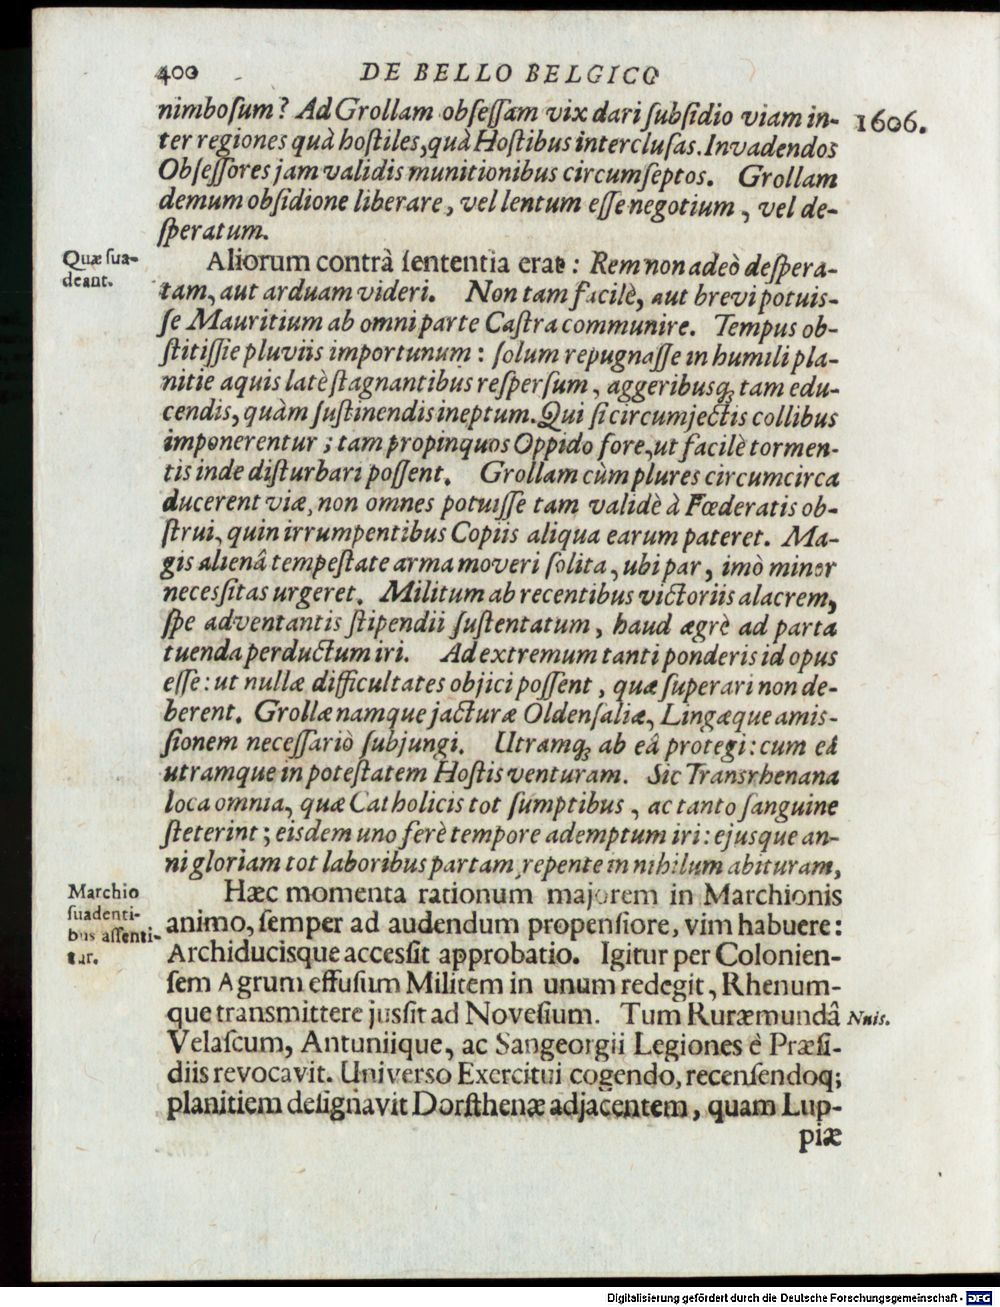 400 DE BELLO BELGICO
nimboſum? Ad Grollam obſeſſam vix dari ſubſidio viam in- 1606.
ter regiones quà hoſtiles, quà Hoſtibus intercluſas. Invadendos
Obſeſſores jam validis munitionibus circumſeptos. Grollam
demum obſidione liberare, vel lentum eſſe negotium, vel de-
ſperatum.
Quæ ſua-
deant.
Aliorum contrà ſententia erat: Rem non adeò deſpera-
tam, aut arduam videri. Non tam facilè, aut brevi potuiſ-
ſe Mauritium ab omni parte Caſtra communire. Tempus ob-
ſtitiſſie pluviis importunum: ſolum repugnaſſe in humili pla-
nitie aquis latè ſtagnantibus reſperſum, aggeribusq; tam edu-
cendis, quàm ſuſtinendis ineptum. Qui ſi circumjectis collibus
imponerentur; tam propinquos Oppido fore, ut facilè tormen-
tis inde diſturbari poſſent. Grollam cùm plures circumcirca
ducerent viæ, non omnes potuiſſe tam validè à Fœderatis ob-
ſtrui, quin irrumpentibus Copiis aliqua earum pateret. Ma-
gis alienâ tempeſtate arma moveri ſolita, ubi par, imò minor
necesſitas urgeret. Militum ab recentibus victoriis alacrem,
ſpe adventantis ſtipendii ſuſtentatum, haud ægrè ad parta
tuenda perductum iri. Ad extremum tanti ponderis id opus
eſſe: ut nullæ difficultates objici poſſent, quæ ſuperari non de-
berent. Grollæ namque jacturæ Oldenſaliæ, Lingæque amiſ-
ſionem neceſſariò ſubjungi. Utramq; ab eâ protegi: cum eâ
utramque in poteſtatem Hoſtis venturam. Sic Transrhenana
loca omnia, quæ Catholicis tot ſumptibus, ac tanto ſanguine
ſteterint; eisdem uno ferè tempore ademptum iri: ejusque an-
ni gloriam tot laboribus partam, repente in nihilum abituram,
Marchio
ſuadenti-
bus aſſenti-
tur.
Hæc momenta rationum majorem in Marchionis
animo, ſemper ad audendum propenſiore, vim habuere:
Archiducisque accesſit approbatio. Igitur per Colonien-
ſem Agrum effuſum Militem in unum redegit, Rhenum-
que transmittere jusſit ad Noveſium. Tum Ruræmundâ Nuis.
Velaſcum, Antuniique, ac Sangeorgii Legiones è Præſi-
diis revocavit. Universo Exercitui cogendo, recenſendoq;
planitiem deſignavit Dorſthenæ adjacentem, quam Lup-
piæ
Digitalisierung gefördert durch die Deutsche Forschungsgemeinschaft - DFG